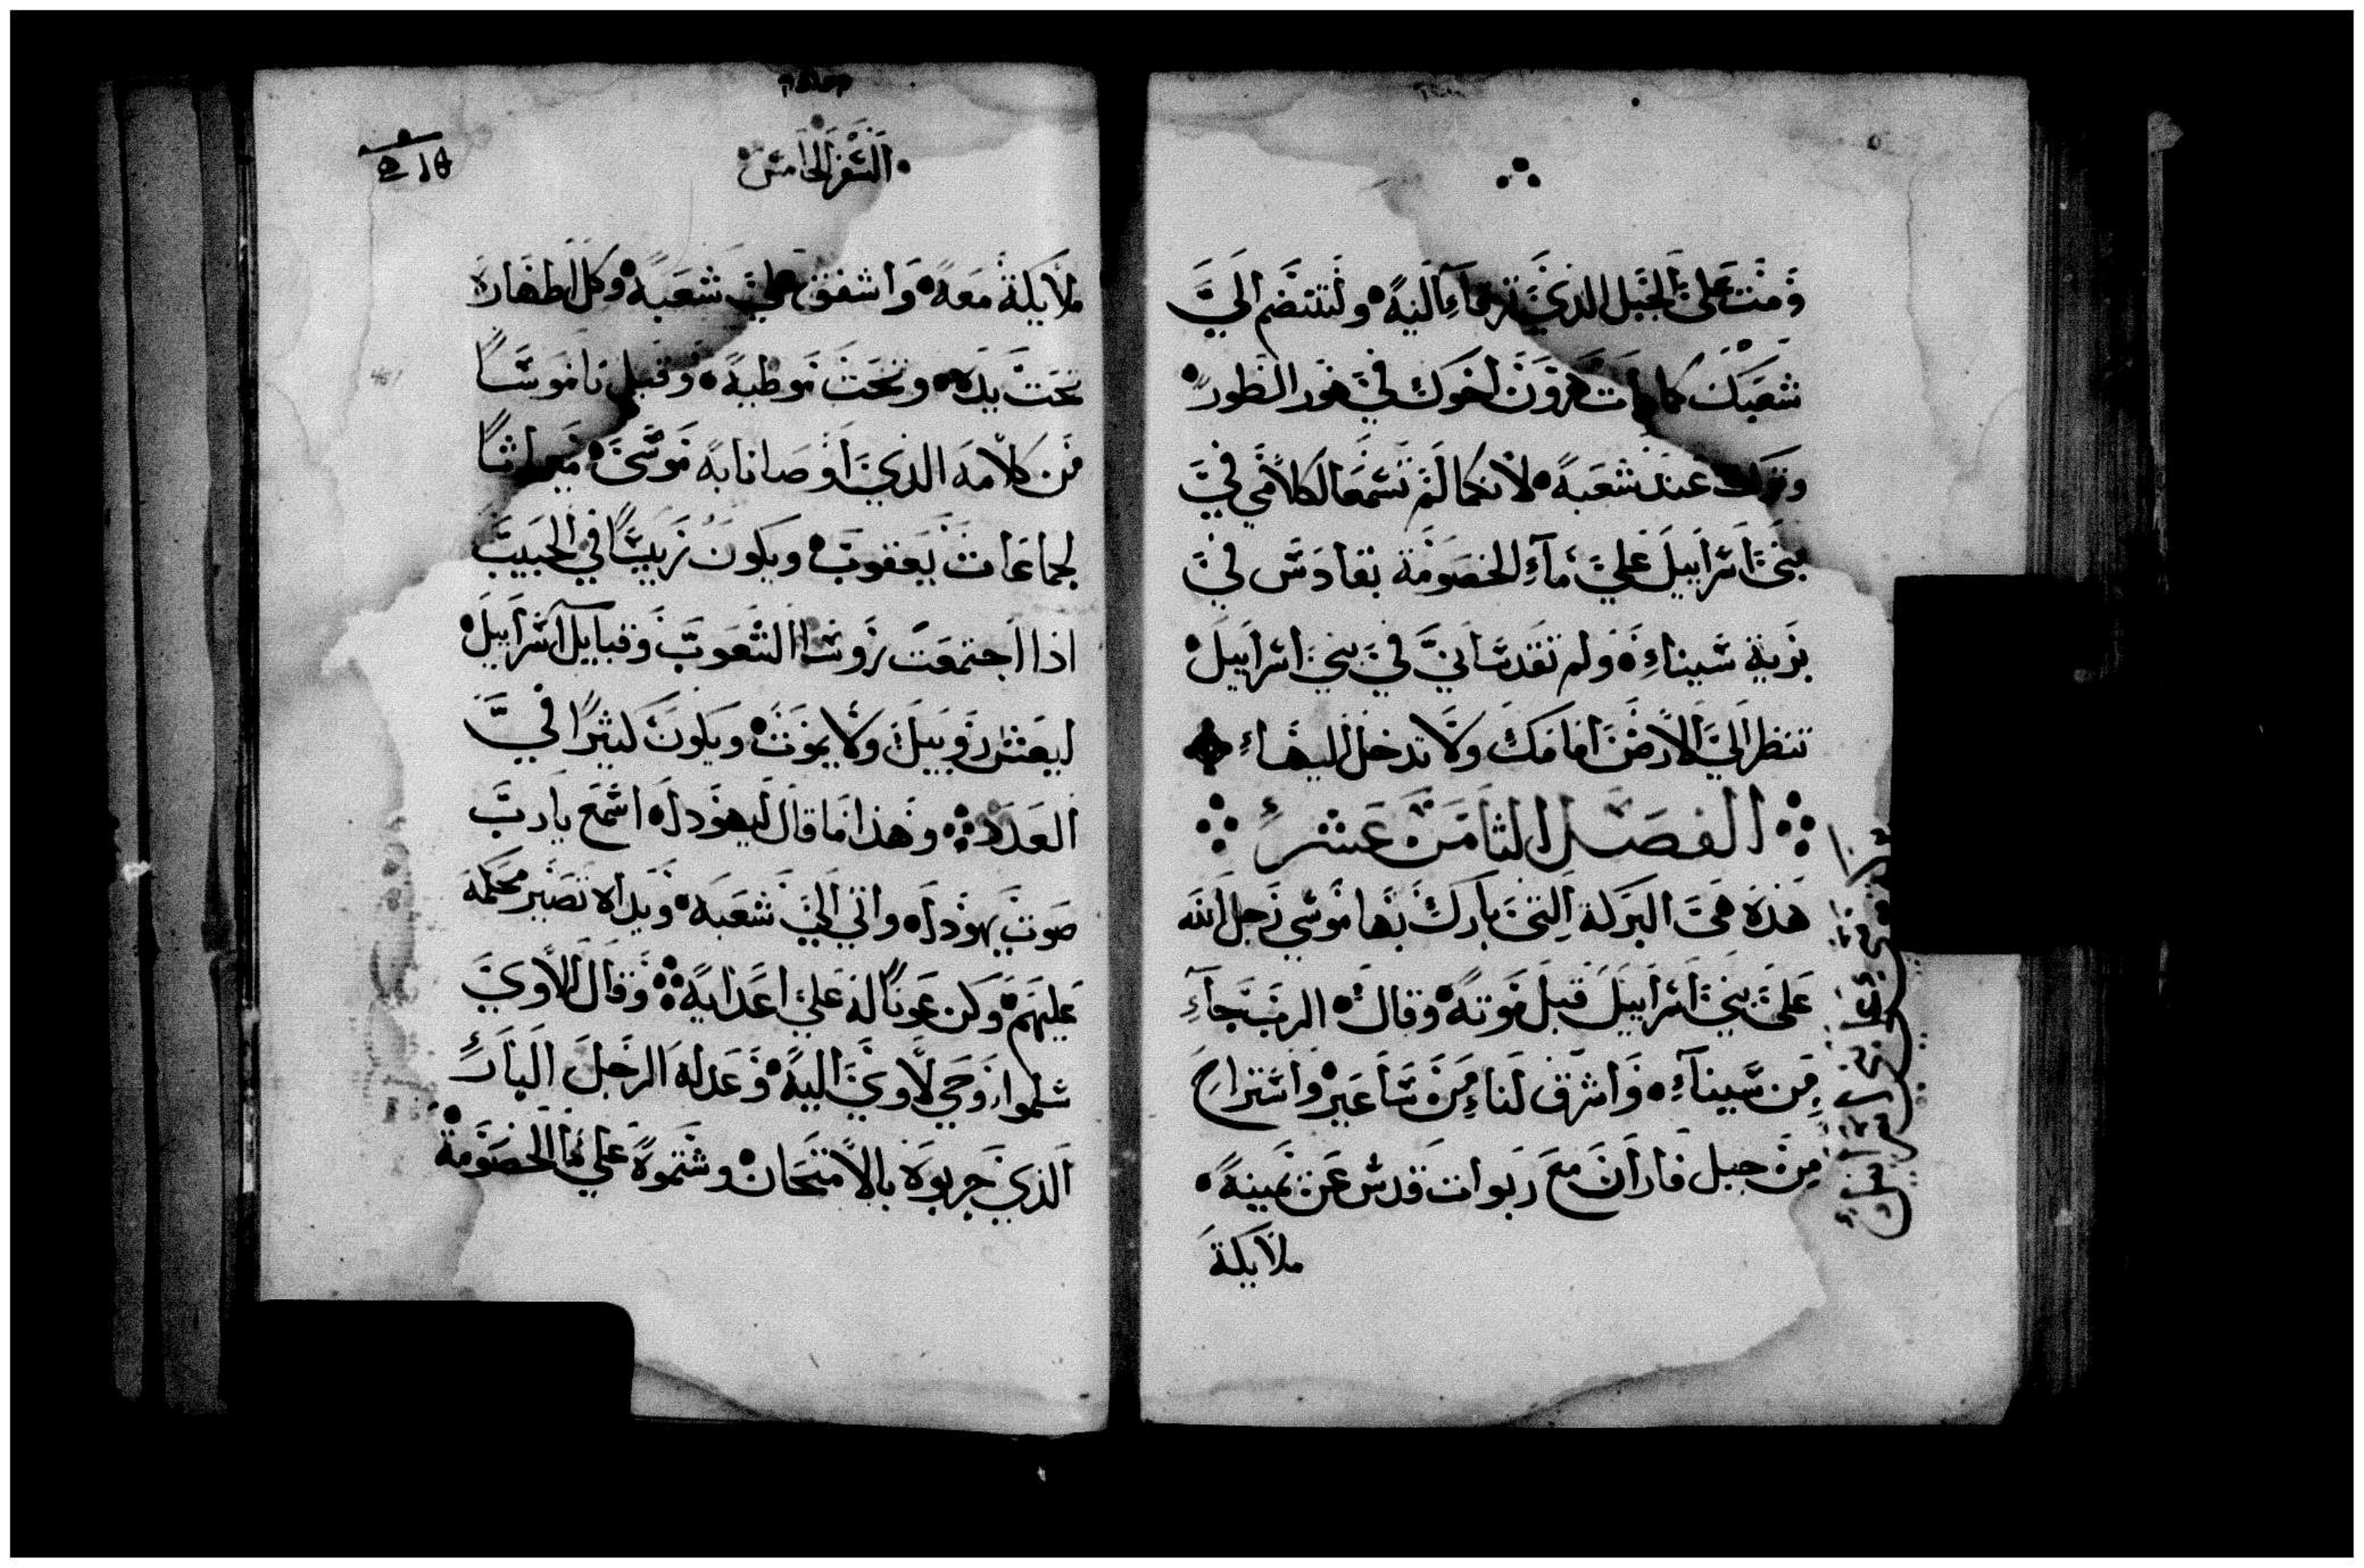 ومت على الجبل الذي ترقاء اليه ولتنضم الي
شعبك كما مات هرون اخوك في هور الطور
وترك عند شعبه لانكما لم تسمعا لكلامي في
بني اسراييل علي ماء الخصومة بقادس في
برية سيناء ولم تقدساني في بني اسراييل
تنظر الي الارض امامك ولا تدخل اليهاء
الفصل الثامن عشر
هذه هي البركة التي بارك بها موسي رجل الله
على بني اسراييل قبل موته وقال الرب جاء
من سيناء واشرق لناء من ساعير واستراح
من جبل فاران مع ربوات قدس عن يمينه
ملايكة
السفر الخامس
ملايكة معه واشفق علي شعبه وكل اطهاره
تحت يده وتحت موطيه وقبل ناموسا
من كلامه الذي اوصانا به موسى ميراثا
لجماعات يعقوب ويكون رييسا في الحبيب
اذا اجتمعت روسا الشعوب وقبايل اسراييل
ليعش روبيل ولا يموت ويكون كثيرا في
العدد وهذا ما قال ليهودا اسمع يارب
صوت يهودا واتي الي شعبه ويداه تصير محكمه
عليهم وكن عونا له علي اعدايه وقال للاوي
سلموا وحي لاوي اليه وعدله الرجل البار
الذي جربوه بالامتحان وشتموه علي ما الخصومة